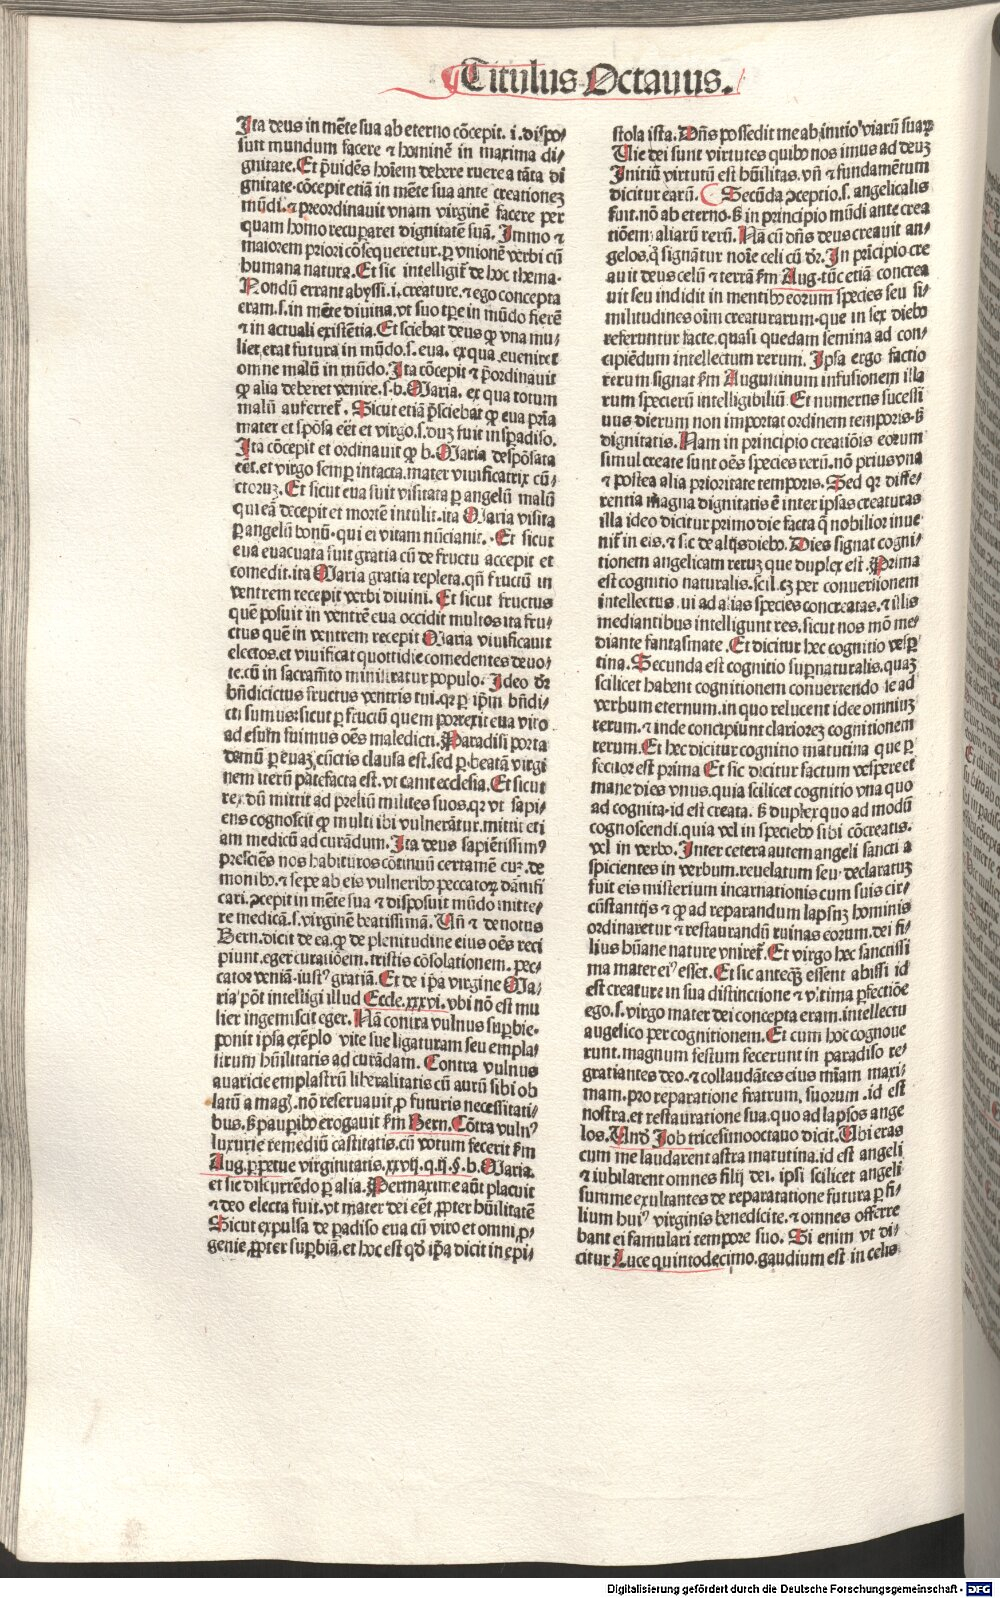 Titulus Octauus.
Ita deus in mēte sua ab eterno cōcepit. i. dispo⸗
suit mundum facere ⁊ hominē in maxima di⸗
gnitate. Et p̄uidēs hoīem debere ruere a tāta di
gnitate cōcepit etiā in mēte sua ante creationeꝫ
mūdi. ⁊ preordinauit vnam virginē facere per
quam homo recuparet dignitatē suā. Immo ⁊
maiorem priori cōsequeretur. ꝑ vnionē verbi cū
humana natura. Et sic intelligit᷑ de hoc thema.
Nondū errant abyssi. i. creature. ⁊ ego concepta
eram. s. in mēte diuina. vt suo tꝑe in mūdo fierē
⁊ in actuali existētia. Et sciebat deus ꝙ vna mu⸗
lier erat futura in mūdo. s. eua. ex qua eueniret
omne malū in mūdo. Ita cōcepit ⁊ p̄ordinauit
ꝙ alia deberet venire. s. b. Maria. ex qua totum
malū auferret᷑. Sicut etiā p̄sciebat ꝙ eua pria
mater et spōsa eēt et virgo. s. duꝫ fuit in ꝑadiso.
Ita cōcepit et ordinauit ꝙ b. Maria despōsata
eēt. et virgo semꝑ intacta. mater viuificatrix cū⸗
ctoruꝫ. Et sicut eua fuit visitata ꝑ angelū malū
qui eā decepit et mortē intulit. ita Maria visita
ꝑ angelū bonū. qui ei vitam nūciauit. Et sicut
eua euacuata fuit gratia cū de fructu accepit et
comedit. ita Maria gratia repleta. qn̄ fructū in
ventrem recepit verbi diuini. Et sicut fructus
quē posuit in ventrē eua occidit multos ita fru⸗
ctus quē in ventrem recepit Maria viuificauit
electos. et viuificat quottidie comedentes deuo⸗
te. cū in sacramēto ministratur populo. Ideo dr̄
bn̄dictus fructus ventris tui. qꝛ ꝑ ip̄m bn̄di⸗
cti sumus: sicut ꝑ fructū quem porrexit eua viro
ad esum fuimus oēs maledicti. Paradisi porta
domū ꝑ euaꝫ cūctis clausa est. sed ꝑ beatā virgi
nem iterū patefacta est. vt canit ecclesia. Et sicut
rex dū mittit ad preliū milites suos. qꝛ vt sapi⸗
ens cognoscit ꝙ multi ibi vulnerātur. mittit eti
am medicū ad curādum. Ita deus sapiētissim⁹
presciēs nos habituros cōtinuū certamē cuꝫ de
monibꝰ. ⁊ sepe ab eis vulneribꝰ peccatoꝝ dānifi
cari. ꝯcepit in mēte sua ⁊ disposuit mūdo mitte⸗
re medicā. s. virginē beatissimā. Vn̄ ⁊ deuotus
Bern. dicit de ea. ꝙ de plenitudine eius oēs reci
piunt. eger curatiōem. tristis cōsolationem. pec⸗
cator veniā. iust⁹ gratiā. Et de ip̄a virgine Ma⸗
ria pōt intelligi illud Eccle. xxxvi. vbi nō est mu
lier ingemiscit eger. Nā contra vulnus suꝑbie.
ponit ipsa exēplo vite sue ligaturam seu empla⸗
strum hūilitatis ad curādam. Contra vulnus
auaricie emplastrū liberalitatis cū aurū sibi ob
latū a magꝭ. nō reseruauit. ꝓ futuris necessitati⸗
bus. sꝫ pauꝑibꝰ erogauit ẜm Bern. Cōtra vuln⁹
luxurie remediū castitatis. cū votum fecerit ẜm
Aug. ꝑpetue virginitatis. xxvij. q. ij. §. b. Maria.
et sic discurrēdo ꝑ alia. Permaxime aūt placuit
⁊ deo electa fuit. vt mater dei eēt ꝓpter hūilitatē
Sicut expulsa de ꝑadiso eua cū viro et omni ꝓ⸗
genie ꝓpter suꝑbiā. et hoc est qd̄ ip̄a dicit in epi⸗
stola ista. Dn̄s possedit me ab initio viarū suaꝝ
Vie dei sunt virtutes quibꝰ nos imus ad deuꝫ
Initiū virtutū est hūilitas. vn̄ ⁊ fundamētum
dicitur earū. Secūda ꝯceptio. s. angelicalis
fuit. nō ab eterno. sꝫ in principio mūdi ante crea
tiōem aliarū rerū. Nā cū dn̄s deus creauit an⸗
gelos. qͥ signātur noīe celi cū dr̄. In prīcipio cre
auit deus celū ⁊ terrā ẜm Aug. tūc etiā concrea
uit seu indidit in mentibꝰ eorum species seu si⸗
militudines oīm creaturarum. que in sex diebꝰ
referuntur facte. quasi quedam semina ad con⸗
cipiēdum intellectum rerum. Ipsa ergo factio
rerum signat ẜm Augustinum infusionem illa
rum specierū intelligibiliū Et numerus sucessi
uus dierum non importat ordinem temporis. sꝫ
dignitatis. Nam in principio creatiōis eorum
simul create sunt oēs species rerū. nō prius vna
⁊ postea alia prioritate temporis. Sed qꝛ diffe⸗
rentia magna dignitatis ē inter ipsas creaturas
illa ideo dicitur primo die facta q̄ nobilior inue
nit᷑ in eis. ⁊ sic de alijs diebꝰ. Dies signat cogni⸗
tionem angelicam reruꝫ que duplex est. Prima
est cognitio naturalis. scilicꝫ per conuersionem
intellectus sui ad alias species concreatas. ⁊ illis
mediantibus intelligunt res. sicut nos mō me⸗
diante fantasmate. Et dicitur hec cognitio vesꝑ
tina. Secunda est cognitio suꝑnaturalis. quaꝫ
scilicet habent cognitionem conuertendo se ad
verbum eternum. in quo relucent idee omniuꝫ
rerum. ⁊ inde concipiunt clarioreꝫ cognitionem
rerum. Et hec dicitur cognitio matutina que ꝑ
fectior est prima Et sic dicitur factum vespere et
mane dies vnus. quia scilicet cognitio vna quo
ad cognita. id est creata. sꝫ duplex quo ad modū
cognoscendi. quia vel in speciebꝰ sibi cōcreatis.
vel in verbo. Inter cetera autem angeli sancti a
spicientes in verbum. reuelatum seu declaratuꝫ
fuit eis misterium incarnationis cum suis cir⸗
cūstantijs ⁊ ꝙ ad reparandum lapsuꝫ hominis
ordinaretur ⁊ restaurandū ruinas eorum. dei fi⸗
lius hūane nature vniret᷑. Et virgo hec sanctissi
ma mater ei⁹ esset. Et sic anteqꝫ essent abissi id
est creature in sua distinctione ⁊ vltima ꝑfectiōe
ego. s. virgo mater dei concepta eram. intellectu
angelico per cognitionem. Et cum hoc cognoue
runt. magnum festum fecerunt in paradiso re⸗
gratiantes deo. ⁊ collaudātes eius mīam maxi⸗
mam. pro reparatione fratrum, suorum. id est
nostra. et restauratione sua. quo ad lapsos ange
los. Vnd̄ Job tricesimooctauo dicit. Vbi eras
cum me laudarent astra matutina. id est angeli
⁊ iubilarent omnes filij dei. ipsi scilicet angeli
summe exultantes de reparatatione futura ꝑ fi⸗
lium hui⁹ virginis benedicite. ⁊ omnes offerre
bant ei famulari tempore suo. Si enim vt di⸗
citur Luce quintodecimo. gaudium est in celis
Digitalisierung gefördert durch die Deutsche Forschungsgemeinschaft - DFG